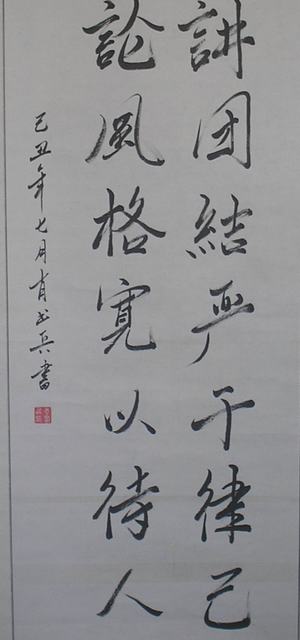 讲团結严于律己
論風格寬以待人
己丑年七月肖兵書